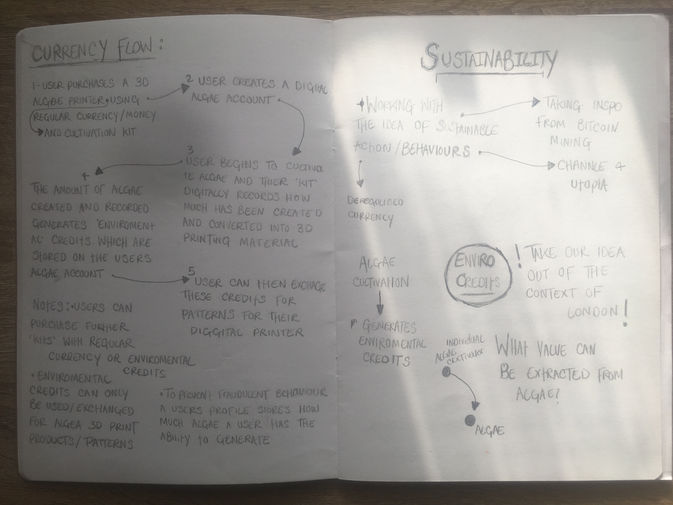 CURRENCY FLOW:
1. USER PURCHASES A 3D
ALGAE PRINTER USING
REGULAR CURRENCY/MONEY
AND CULTIVATION KIT
2 USER CREATES A DIGITAL
ALGAE ACCOUNT
3
USER BEGINS TO CULTIVA
TE ALGAE AND THIER 'KIT'
DIGITALLY RECORDS HOW
MUCH HAS BEEN CREATED
AND CONVERTED INTO 3D
PRINTING MATERIAL
4
THE AMOUNT OF ALGAE
CREATED AND RECORDED
GENERATES 'ENVIROMENT
AL CREDITS. WHICH ARE
STORED ON THE USERS
ALGAE ACCOUNT
5
USER CAN THEN EXCHAGE
THESE CREDITS FOR
PATTERNS FOR THEIR
DIGGITAL PRINTER
NOTES: USERS CAN
PURCHASE FURTHER
'KITS' WITH REGULAR
CURRENCY OR ENVIROMENTAL
CREDITS
• ENVIROMENTAL
CREDITS CAN ONLY
BE USED/EXCHANGED
FOR ALGEA 3D PRINT
PRODUCTS/PATTERNS
• TO PREVENT FRAUDULENT BEHAVIOUR
A USERS PROFILE STORES HOW
MUCH ALGAE A USER HAS THE
ABILITY TO GENERATE
SUSTAINABILITY
WORKING WITH
THE IDEA OF SUSTAINABLE
ACTION/BEHAVIOURS
TAKING INSPO
FROM BITCOIN
MINING
CHANNLE 4
UTOPIA
CURRENCY
ALGAE
CULTIVATION
GENERATES
ENVIROMENTAL
CREDITS
ENVIRO
CREDITS
! TAKE OUR IDEA
OUT OF THE
CONTEXT OF
LONDON!
INDIVIDUAL
ALGAE CULTIVATOR
ALGAE
WHAT VALUE CAN
BE EXTRACTED FROM
ALGAE?